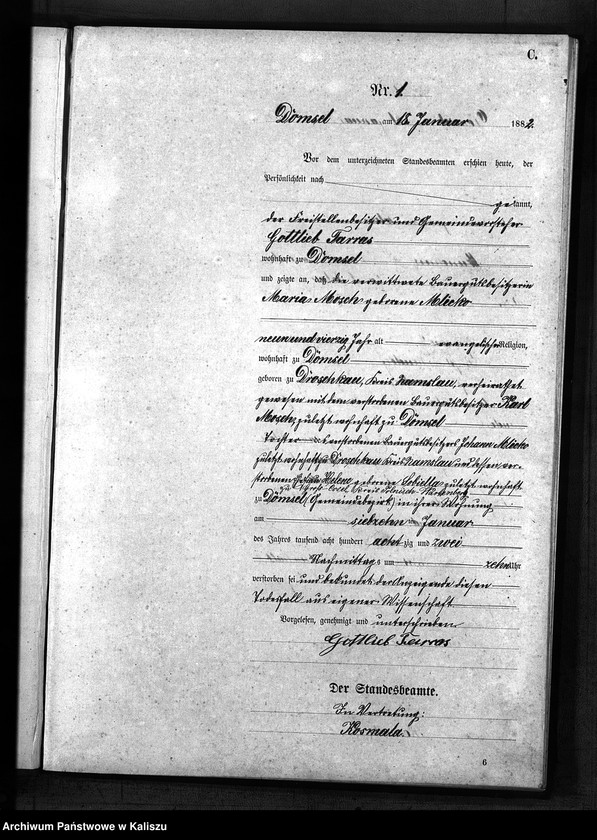 C.
Nr. 1.
Dömsel am 18. Januar 1882.
Vor dem unterzeichneten Standesbeamten erschien heute, der
Persönlichkeit nach
gekannt,
der Freistellenbesitzer und Gemeindevorsteher
Gottlieb Farras
wohnhaft zu Dömsel
und zeigte an, daß die verwittwete Bauergutsbesitzerin
Maria Mosch geborene Mlecko
neunundvierzig Jahr alt evangelischer Religion,
wohnhaft zu Dömsel
geboren zu Droschkau, Kreis Namslau, verheirathet
gewesen mit dem verstorbenen Bauergutsbesitzer Karl
Mosch, zuletzt wohnhaft zu Dömsel
Tochter des verstorbenen Bauergutsbesitzers Johann Mlecko
zuletzt wohnhaft zu Droschkau Kreis Namslau und dessen ver-
storbenen Ehefrau Helena geborene zuletzt wohnhaft
zu Kreis Polnisch-Wartenberg
zu Dömsel (Gemeindebezirk) in ihrer Wohnung
am siebzehnten Januar
des Jahres tausend acht hundert achtzig und zwei
Nachmittags um zehn Uhr
verstorben sei und bekundet der Anzeigende diesen
Todesfall aus eigener Wissenschaft.
Vorgelesen, genehmigt und unterschrieben
Gottlieb Farras
Der Standesbeamte.
In Vertretung:
Kosmala.
6
Archiwum Państwowe w Kaliszu